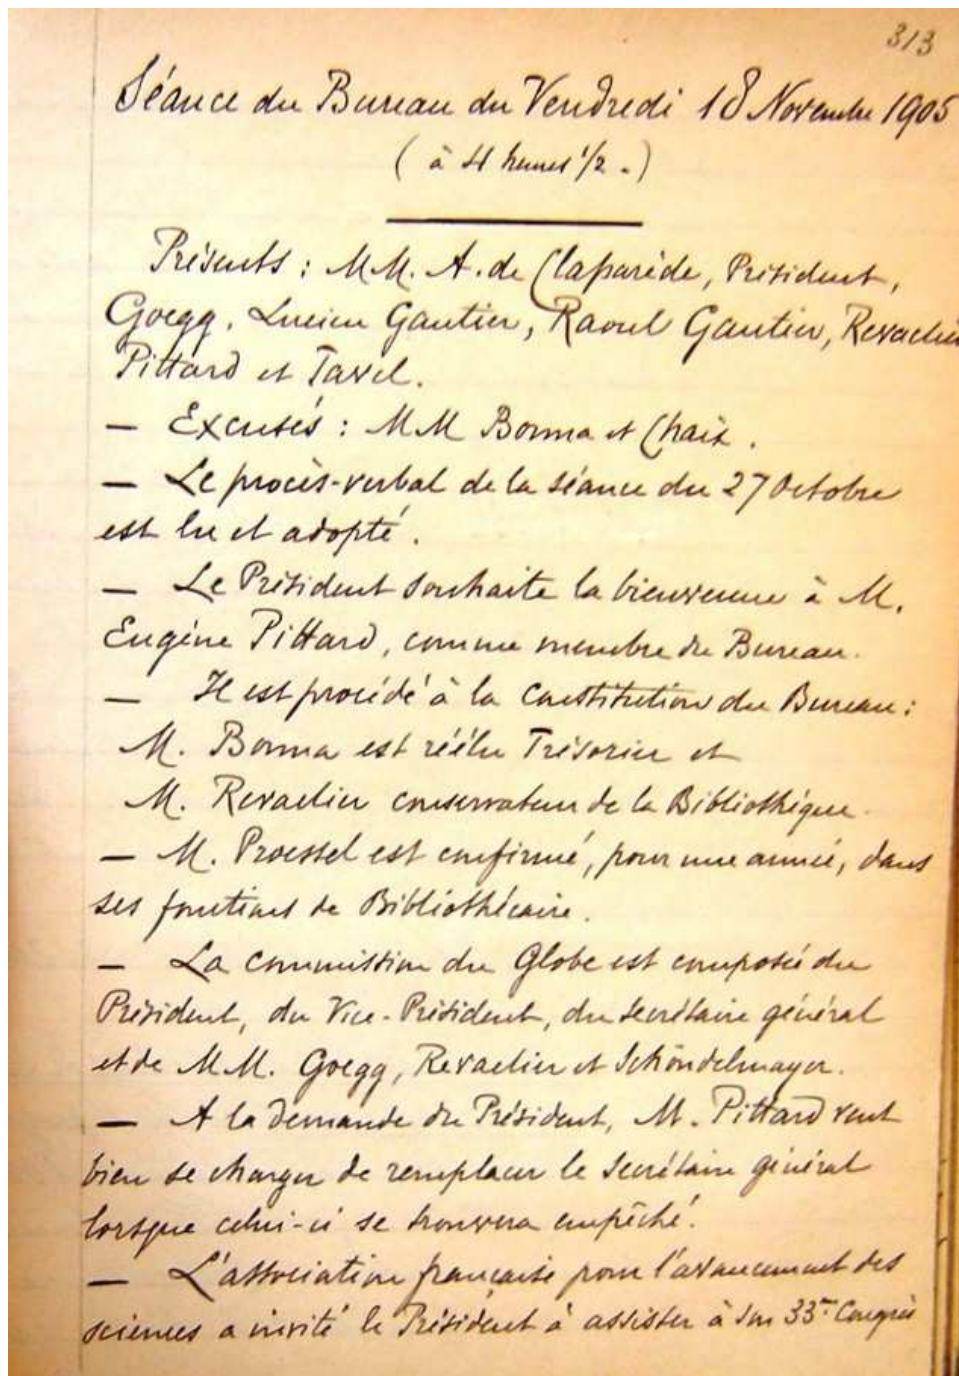 313
Séance du Bureau du Vendredi 18 Novembre 1905
(à 4 heures 1/2.)
Présents : MM. A. de Claparède, Président,
Goegg, Lucien Gautier, Raoul Gautier, Revaclier
Pittard et Tavel.
— Excusés : MM Bonna et Chaix.
— Le procès-verbal de la séance du 27 Octobre
est lu et adopté.
— Le Président souhaite la bienvenue à M.
Eugène Pittard, comme membre du Bureau.
— Il est procédé à la constitution du Bureau :
M. Bonna est réélu Trésorier et
M. Revaclier conservateur de la Bibliothèque.
— M. Proessel est confirmé, pour une année, dans
ses fonctions de Bibliothécaire.
— La commission du Globe est composée du
Président, du Vice-Président, du secrétaire général
et de MM. Goegg, Revaclier et Schöndelmayer.
— A la demande du Président, M. Pittard veut
bien se charger de remplacer le secrétaire général
lorsque celui-ci se trouvera empêché.
— L'association française pour l'avancement des
sciences a invité le Président à assister à son 33me Congrès